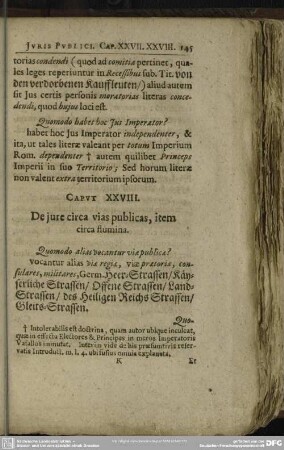 JURIS PUBLICI. CAP. XXVII. XXVIII. 145
torias condendi (quod ad comitia pertinet, qua-
les leges reperiuntur in Recessibus sub. Tit. von
den verdorbenen Kauffleuten/) aliud autem
sit Jus certis personis moratorias literas conce-
dendi, quod hujus loci est.
Quomodo habet hoc Jus Imperator?
habet hoc Jus Imperator independenter, &
ita, ut tales literæ valeant per totum Imperium
Rom. dependenter † autem quilibet Princeps
Imperii in suo Territorio; Sed horum literæ
non valent extra territorium ipsorum.
CAPUT XXVIII.
De jure circa vias publicas, item
circa flumina.
Quomodo alias vocantur viæ publicæ?
vocantur alias viæ regiæ, viæ prætoriæ, con-
sulares, militares, Germ. Heer-Strassen/ Käy-
serliche Strassen/ Offene Strassen/ Land-
Strassen/ des Heiligen Reichs Strassen/
Gleits-Strassen.
Quo-
† Intolerabilis est doctrina, quam autor ubique inculcat,
quæ in effectu Electores & Principes in meros Imperatoris
Vasallos immutat. Interim vide de his præsumtivis reser-
vatis Introduct. m. l. 4. ubi fusius omnia explanata.
K Et